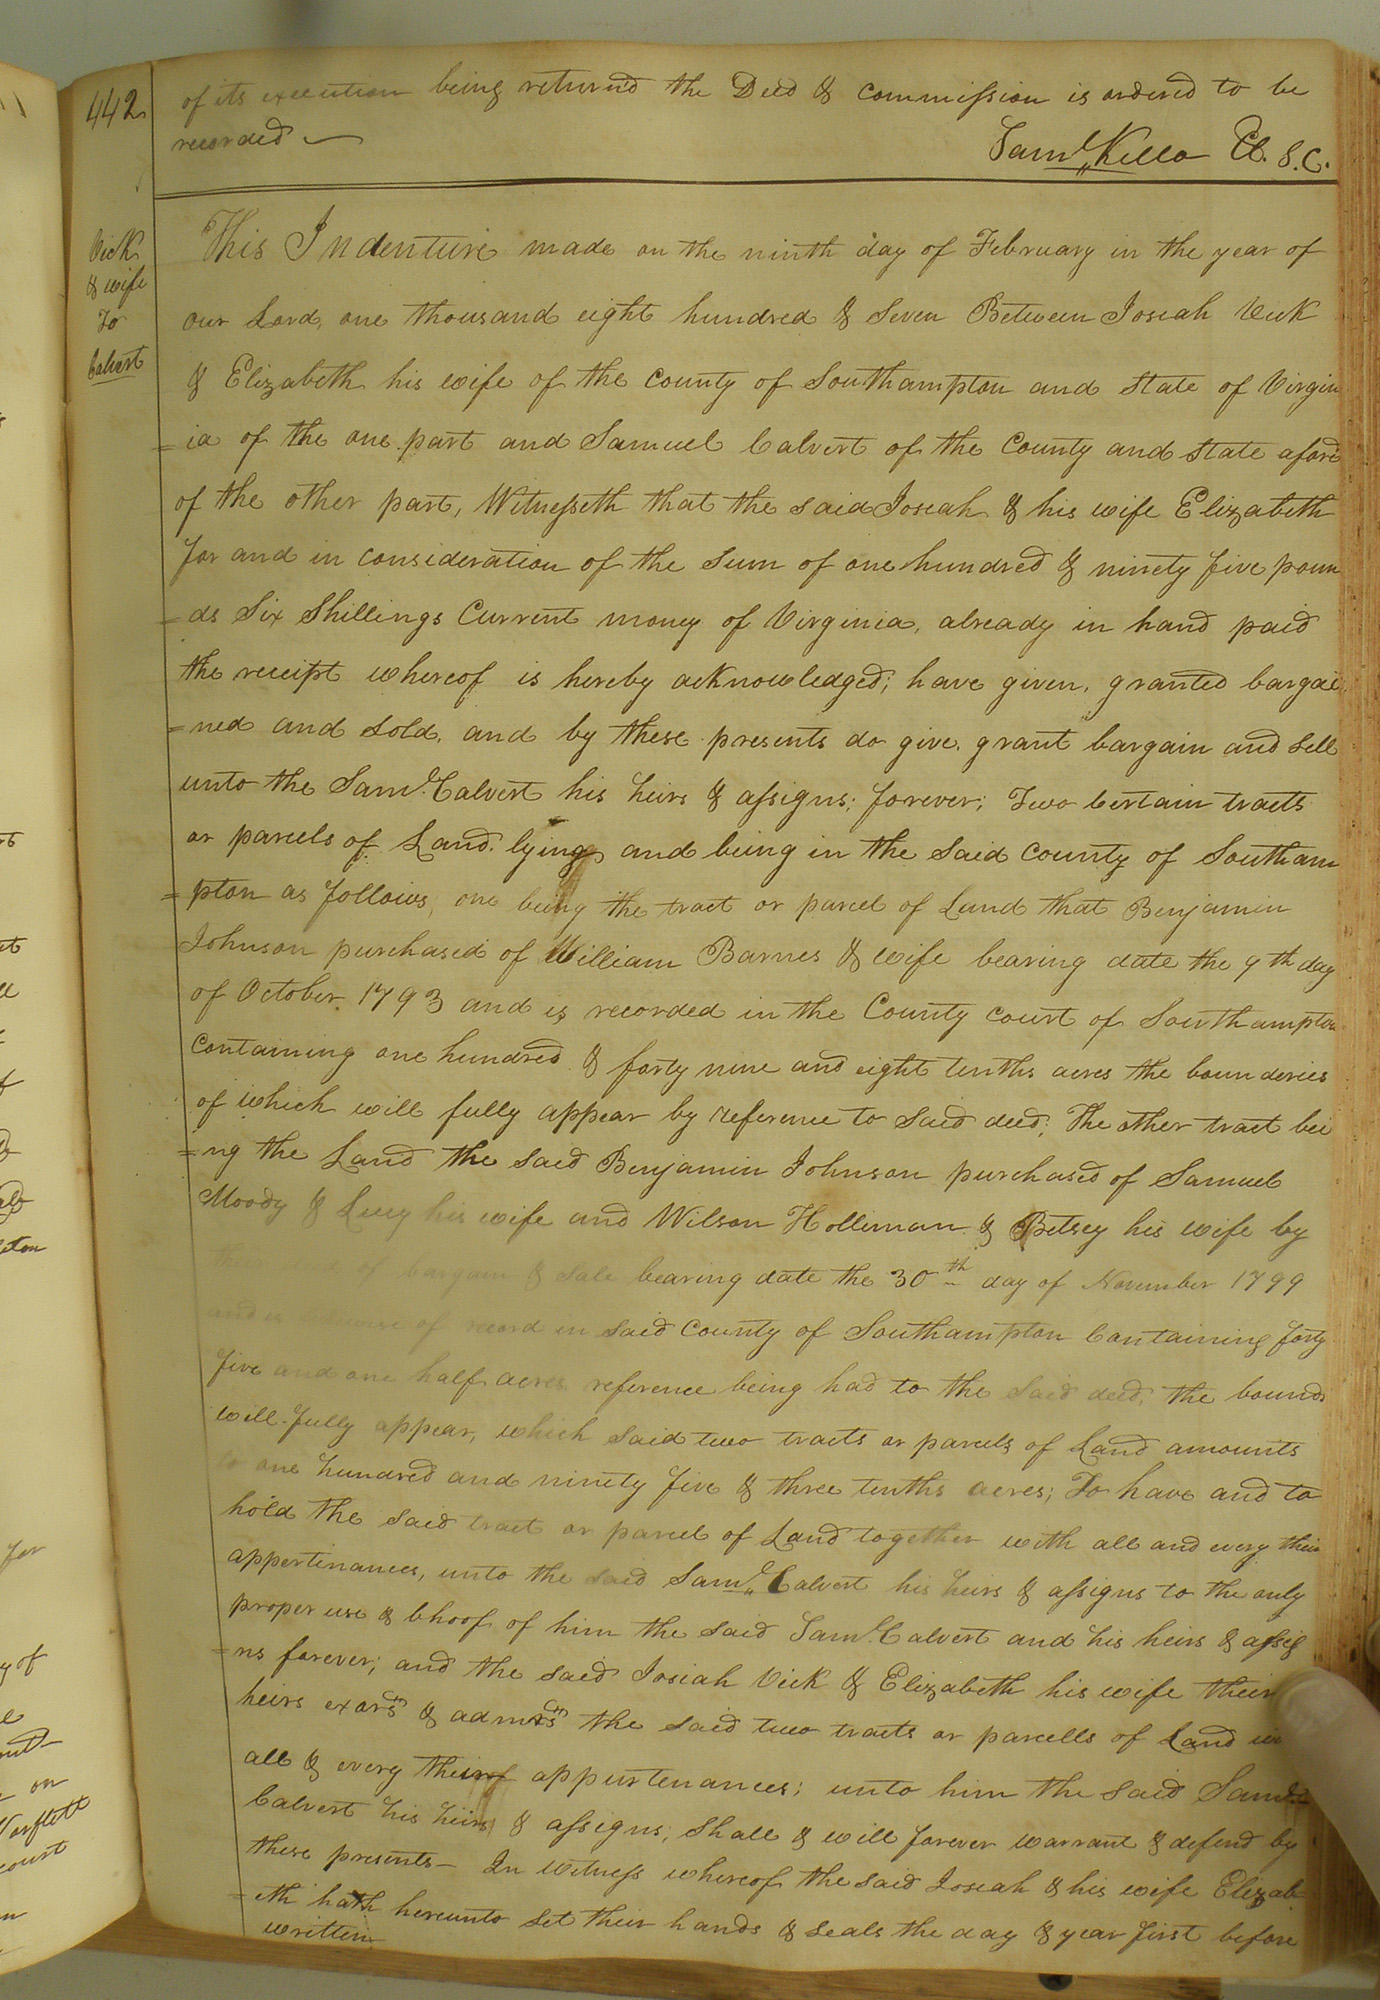 442
of its execution being return'd the Deed & commission is ordered to be
recorded
Saml. Kello Cl. S.C.
Vick
& wife
To
Calvert
This Indenture made on the ninth day of February in the year of
our Lord, one thousand eight hundred & Seven Between Josiah Vick
& Elizabeth his wife of the county of Southampton and state of Virgin
=ia of the one part and Samuel Calvert of the County and state afore
of the other part, Witnesseth that the said Josiah & his wife Elizabeth
for and in consideration of the Sum of one hundred & ninety five poun
=ds Six Shillings Current money of Virginia, already in hand paid
the receipt whereof is hereby acknowledged; have given, granted bargai
=ned and sold, and by these presents do give, grant bargain and sell
unto the Saml. Calvert his heirs & assigns; forever; Two certain tracts
or parcels of Land. lying and being in the said county of Southam
=pton as follows, one being the tract or parcel of Land that Benjamin
Johnson purchased of William Barnes & wife bearing date the 9th day
of October 1793 and is recorded in the County court of Southampton
Containing one hundred & forty nine and eight tenths acres the bounderies
of which will fully appear by reference to said deed; The other tract bei
=ng the Land the said Benjamin Johnson purchased of Samuel
Moody & Lucy his wife and Wilson Holliman & Betsey his wife by
of bargain & Sale bearing date the 30th day of November 1799
and is of record in said County of Southampton Containing forty
five and one half acres reference being had to the said deed, the bounds
will fully appear, which said two tracts or parcels of Land amounts
to one hundred and ninety five & three tenths acres; To have and to
hold the said tract or parcel of Land together with all and every their
appertinances, unto the said Saml. Calvert his heirs & assigns to the only
proper use & bhoof of him the said Saml. Calvert and his heirs & assig
=ns forever; and the said Josiah Vick & Elizabeth his wife their
heirs exors & admrs the said two tracts or parcells of Land
all & every their appurtenances; unto him the said Saml.
Calvert his heirs & assigns, shall & will forever warrant & defend by
these presents – In witness whereof the said Josiah & his wife Elizab
=eth hath hereunto set their hands & seals the day & year first before
written